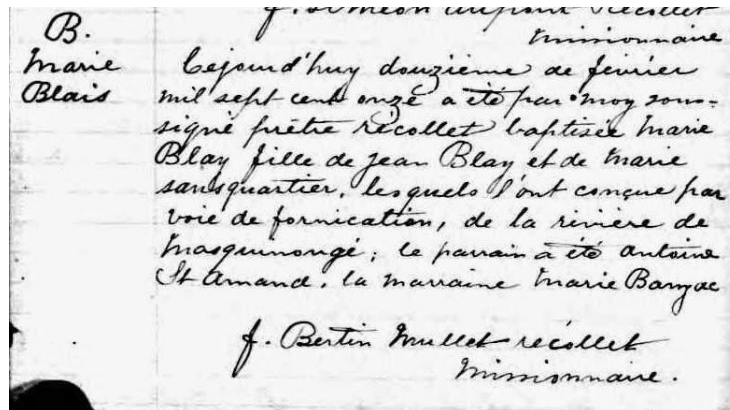 f. Siméon Dupont Récollet
Missionnaire
B.
Marie
Blais
Cejourd'huy douzième de février
mil sept cent onze a été par moy sous-
signé prêtre récollet baptisée Marie
Blay fille de Jean Blay et de Marie
sansquartier, lesquels l'ont conçue par
voie de fornication, de la rivière de
Masquinongé; le parrain a été Antoine
St Amand, la marraine Marie
f. Bertin Mullet récollet
Missionnaire.